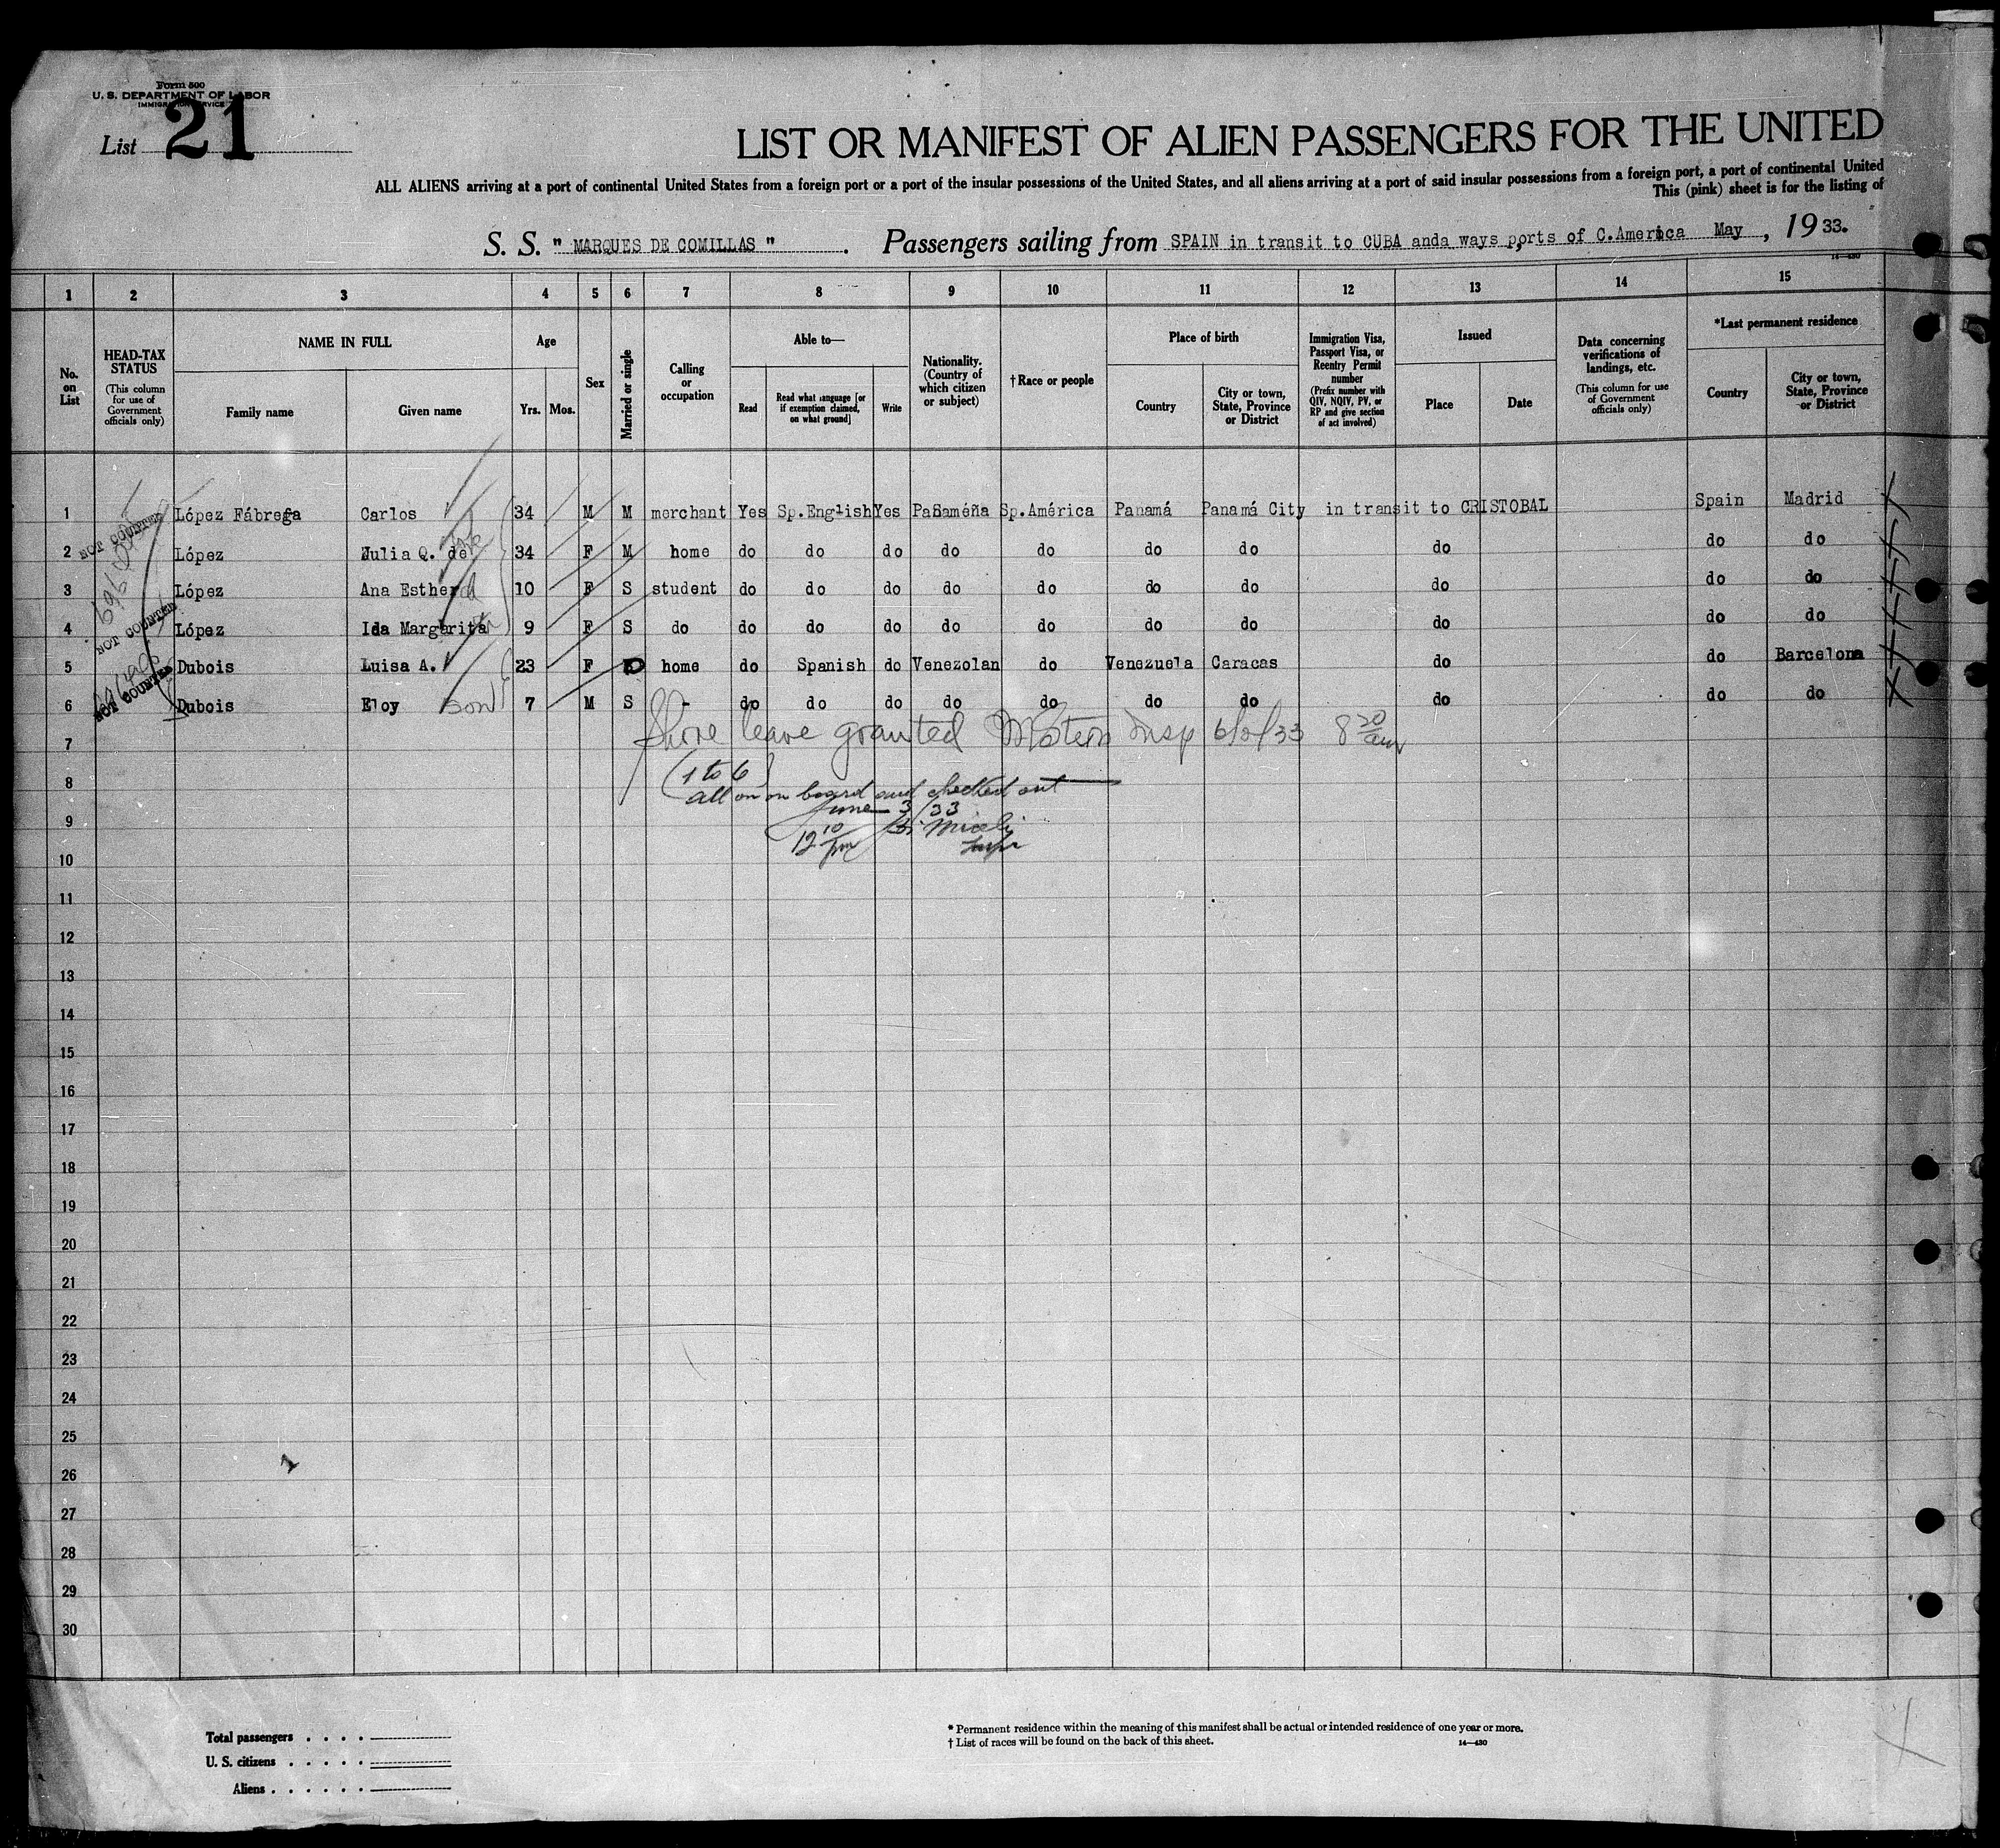 Form 500
U. S. DEPARTMENT OF LABOR
IMMIGRATION SERVICE
List 21
LIST OR MANIFEST OF ALIEN PASSENGERS FOR THE UNITED
ALL ALIENS arriving at a port of continental United States from a foreign port or a port of the insular possessions of the United States, and all aliens arriving at a port of said insular possessions from a foreign port, a port of continental United
This (pink) sheet is for the listing of
S. S. " MARQUES DE COMILLAS " . Passengers sailing from SPAIN in transit to CUBA anda ways ports of C.America May , 19 33.
14—430
1 2 3 4 5 6 7 8 9 10 11 12 13 14 15
No. on List
HEAD-TAX STATUS (This column for use of Government officials only)
NAME IN FULL
Family name Given name
Age
Yrs. Mos.
Sex
Married or single
Calling or occupation
Able to—
Read Read what language [or if exemption claimed, on what ground] Write
Nationality. (Country of which citizen or subject)
† Race or people
Place of birth
Country City or town, State, Province or District
Immigration Visa, Passport Visa, or Reentry Permit number (Prefix number with QIV, NQIV, PV, or RP and give section of act involved)
Issued
Place Date
Data concerning verifications of landings, etc. (This column for use of Government officials only)
*Last permanent residence
Country City or town, State, Province or District
1 López Fábrega Carlos 34 M M merchant Yes Sp.English Yes Panaméña Sp.América Panamá Panamá City in transit to CRISTOBAL Spain Madrid
NOT COUNTED
2 López Julia Q. de 34 F M home do do do do do do do do do do
3 López Ana Esther 10 F S student do do do do do do do do do do
NOT COUNTED
4 López Ida Margarita 9 F S do do do do do do do do do do do
5 Dubois Luisa A. 23 F home do Spanish do Venezolan do Venezuela Caracas do do Barcelona
NOT COUNTED
6 Dubois Eloy son 7 M S - do do do do do do do do do do
7 Shore leave granted Insp 6/2/33 8 30 am
(1 to 6)
8 all on on board and checked out
June 3/33
9
12 10 pm
Insp
10
11
12
13
14
15
16
17
18
19
20
21
22
23
24
25
26
27
28
29
30
Total passengers . . . .
U. S. citizens . . . . .
Aliens . . . . . .
* Permanent residence within the meaning of this manifest shall be actual or intended residence of one year or more.
† List of races will be found on the back of this sheet.
14—430